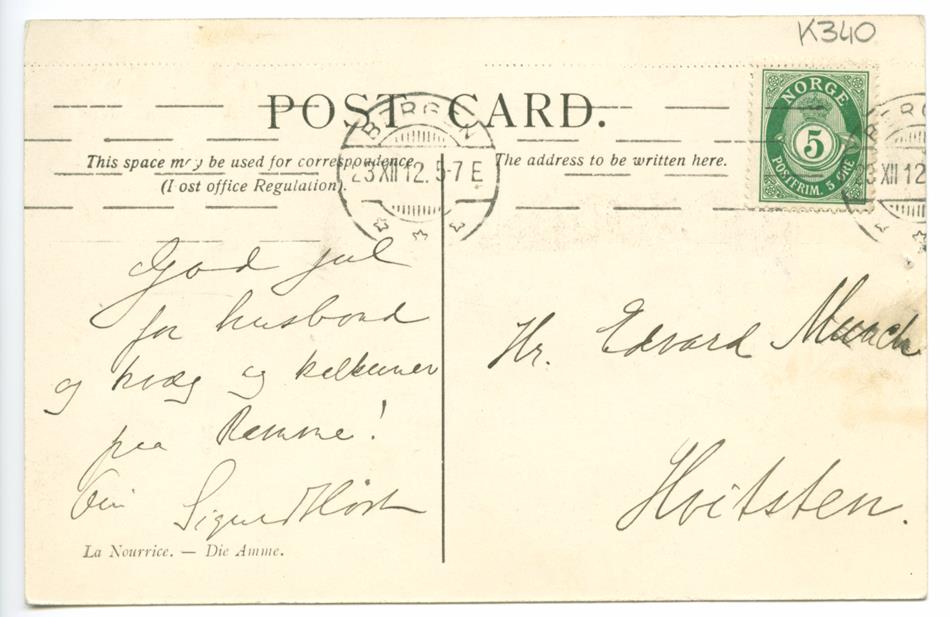 K340
POST CARD.
NORGE
5
POSTFRIM. 5 ØRE
BERGEN
23 XII 12. 5-7 E
23 XII 12
This space may be used for correspondence
(Post office Regulation).
The address to be written here.
God jul
for husbond
og kvæg og kalkuner
paa Ramme!
Din Sigurd Høst
La Nourrice. — Die Amme.
Hr. Edvard Munch
Hvitsten.